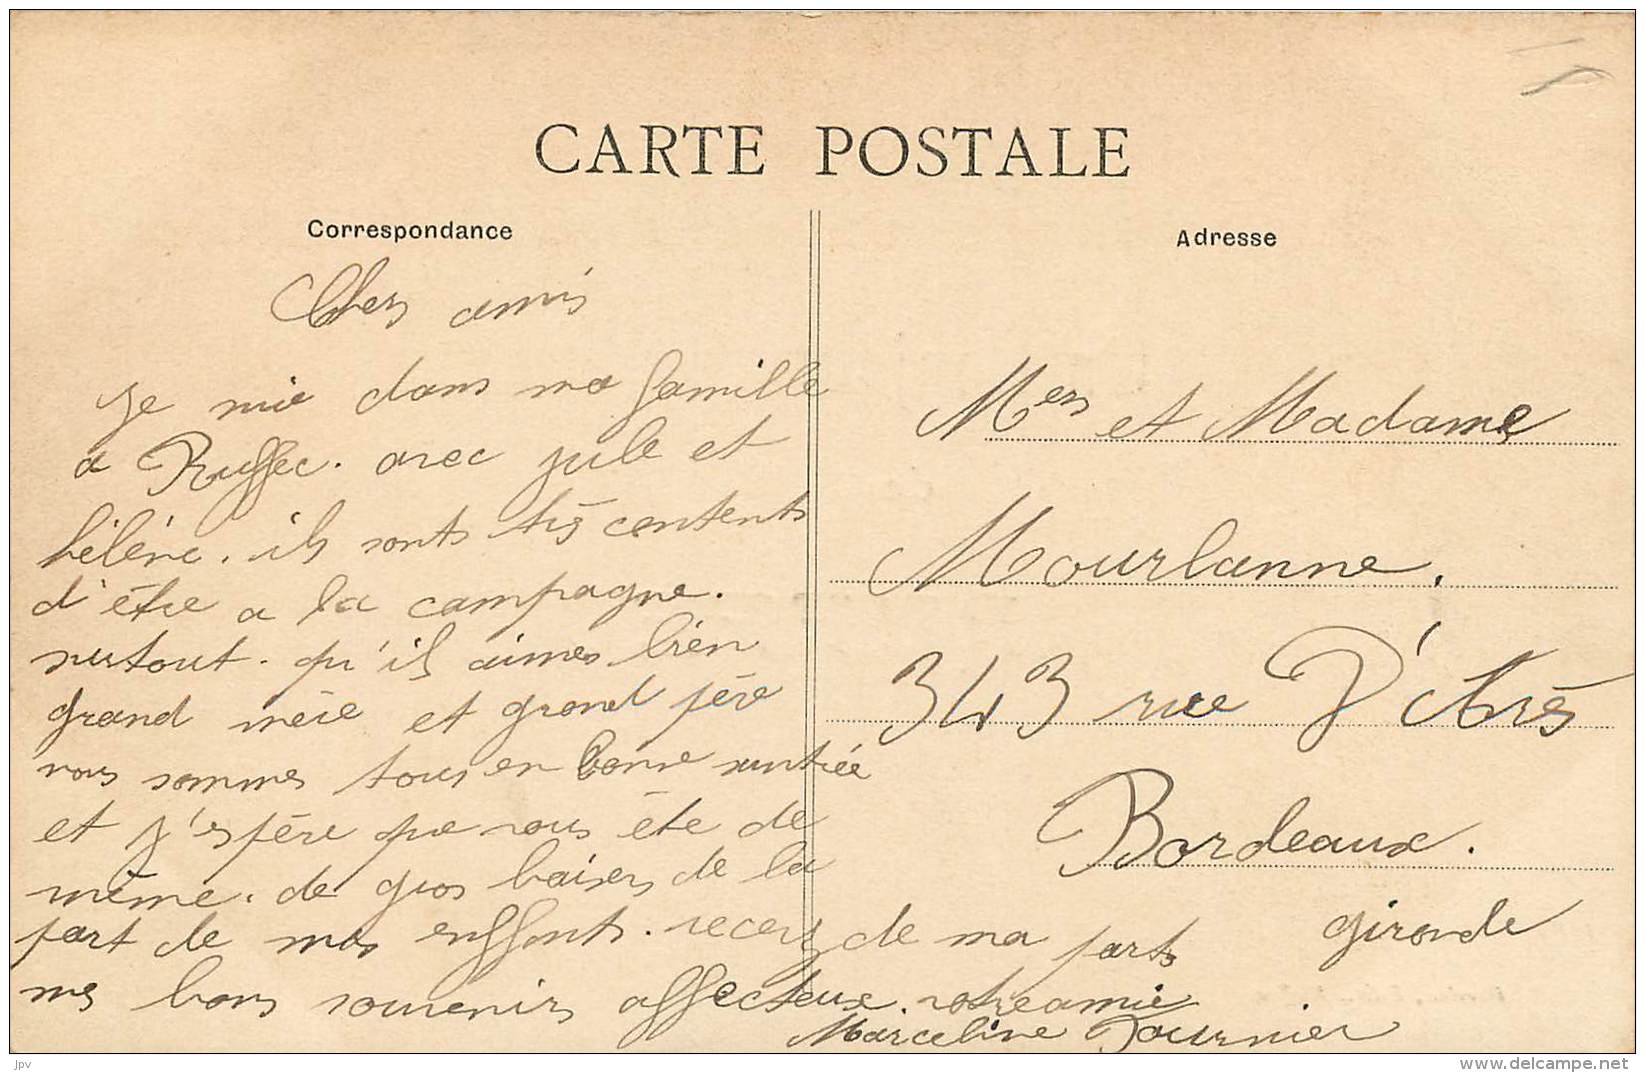 CARTE POSTALE
Correspondance
Chers amis
Je suie dans ma famille
a Ruffec. avec jule et
hélène. ils sonts très contents
d'être a la campagne.
surtout. qu'il aimes bien
grand mère et grand père
nous sommes tous en bonne santée
et j'espère que vous éte de
même. de gros baisers de la
part de mes enffants. recevez de ma parts
mes bons souvenirs affecteux. votre amie
Marceline Tournier
Adresse
Mers et Madame
Mourlanne.
343 rue D'Arès
Bordeaux.
gironde
jpv
delcampe.net